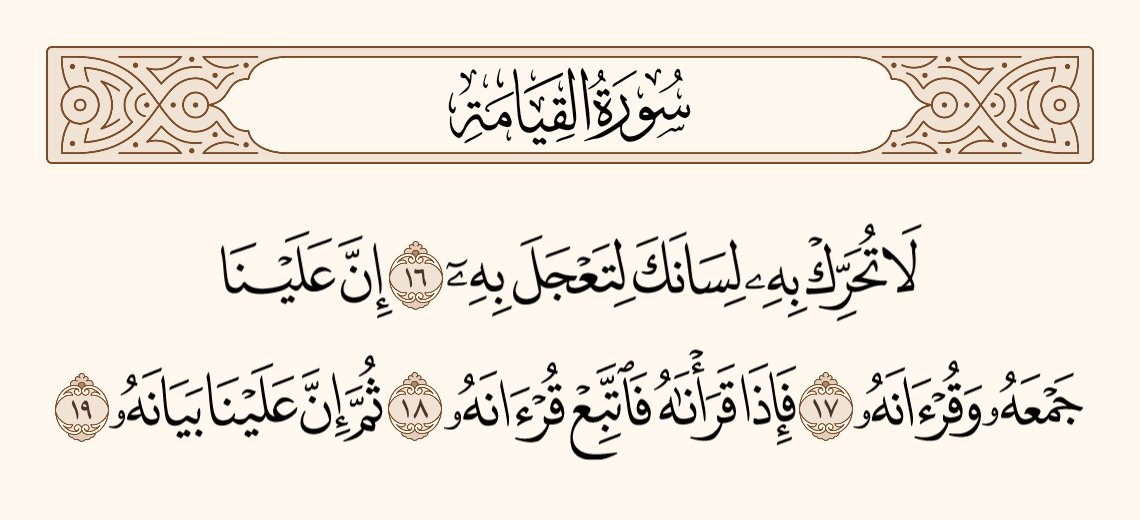 سُورَةُ الْقِيَامَةِ
لَا تُحَرِّكْ بِهِۦ لِسَانَكَ لِتَعْجَلَ بِهِۦٓ ١٦ إِنَّ عَلَيْنَا
جَمْعَهُۥ وَقُرْءَانَهُۥ ١٧ فَإِذَا قَرَأْنَٰهُ فَٱتَّبِعْ قُرْءَانَهُۥ ١٨ ثُمَّ إِنَّ عَلَيْنَا بَيَانَهُۥ ١٩